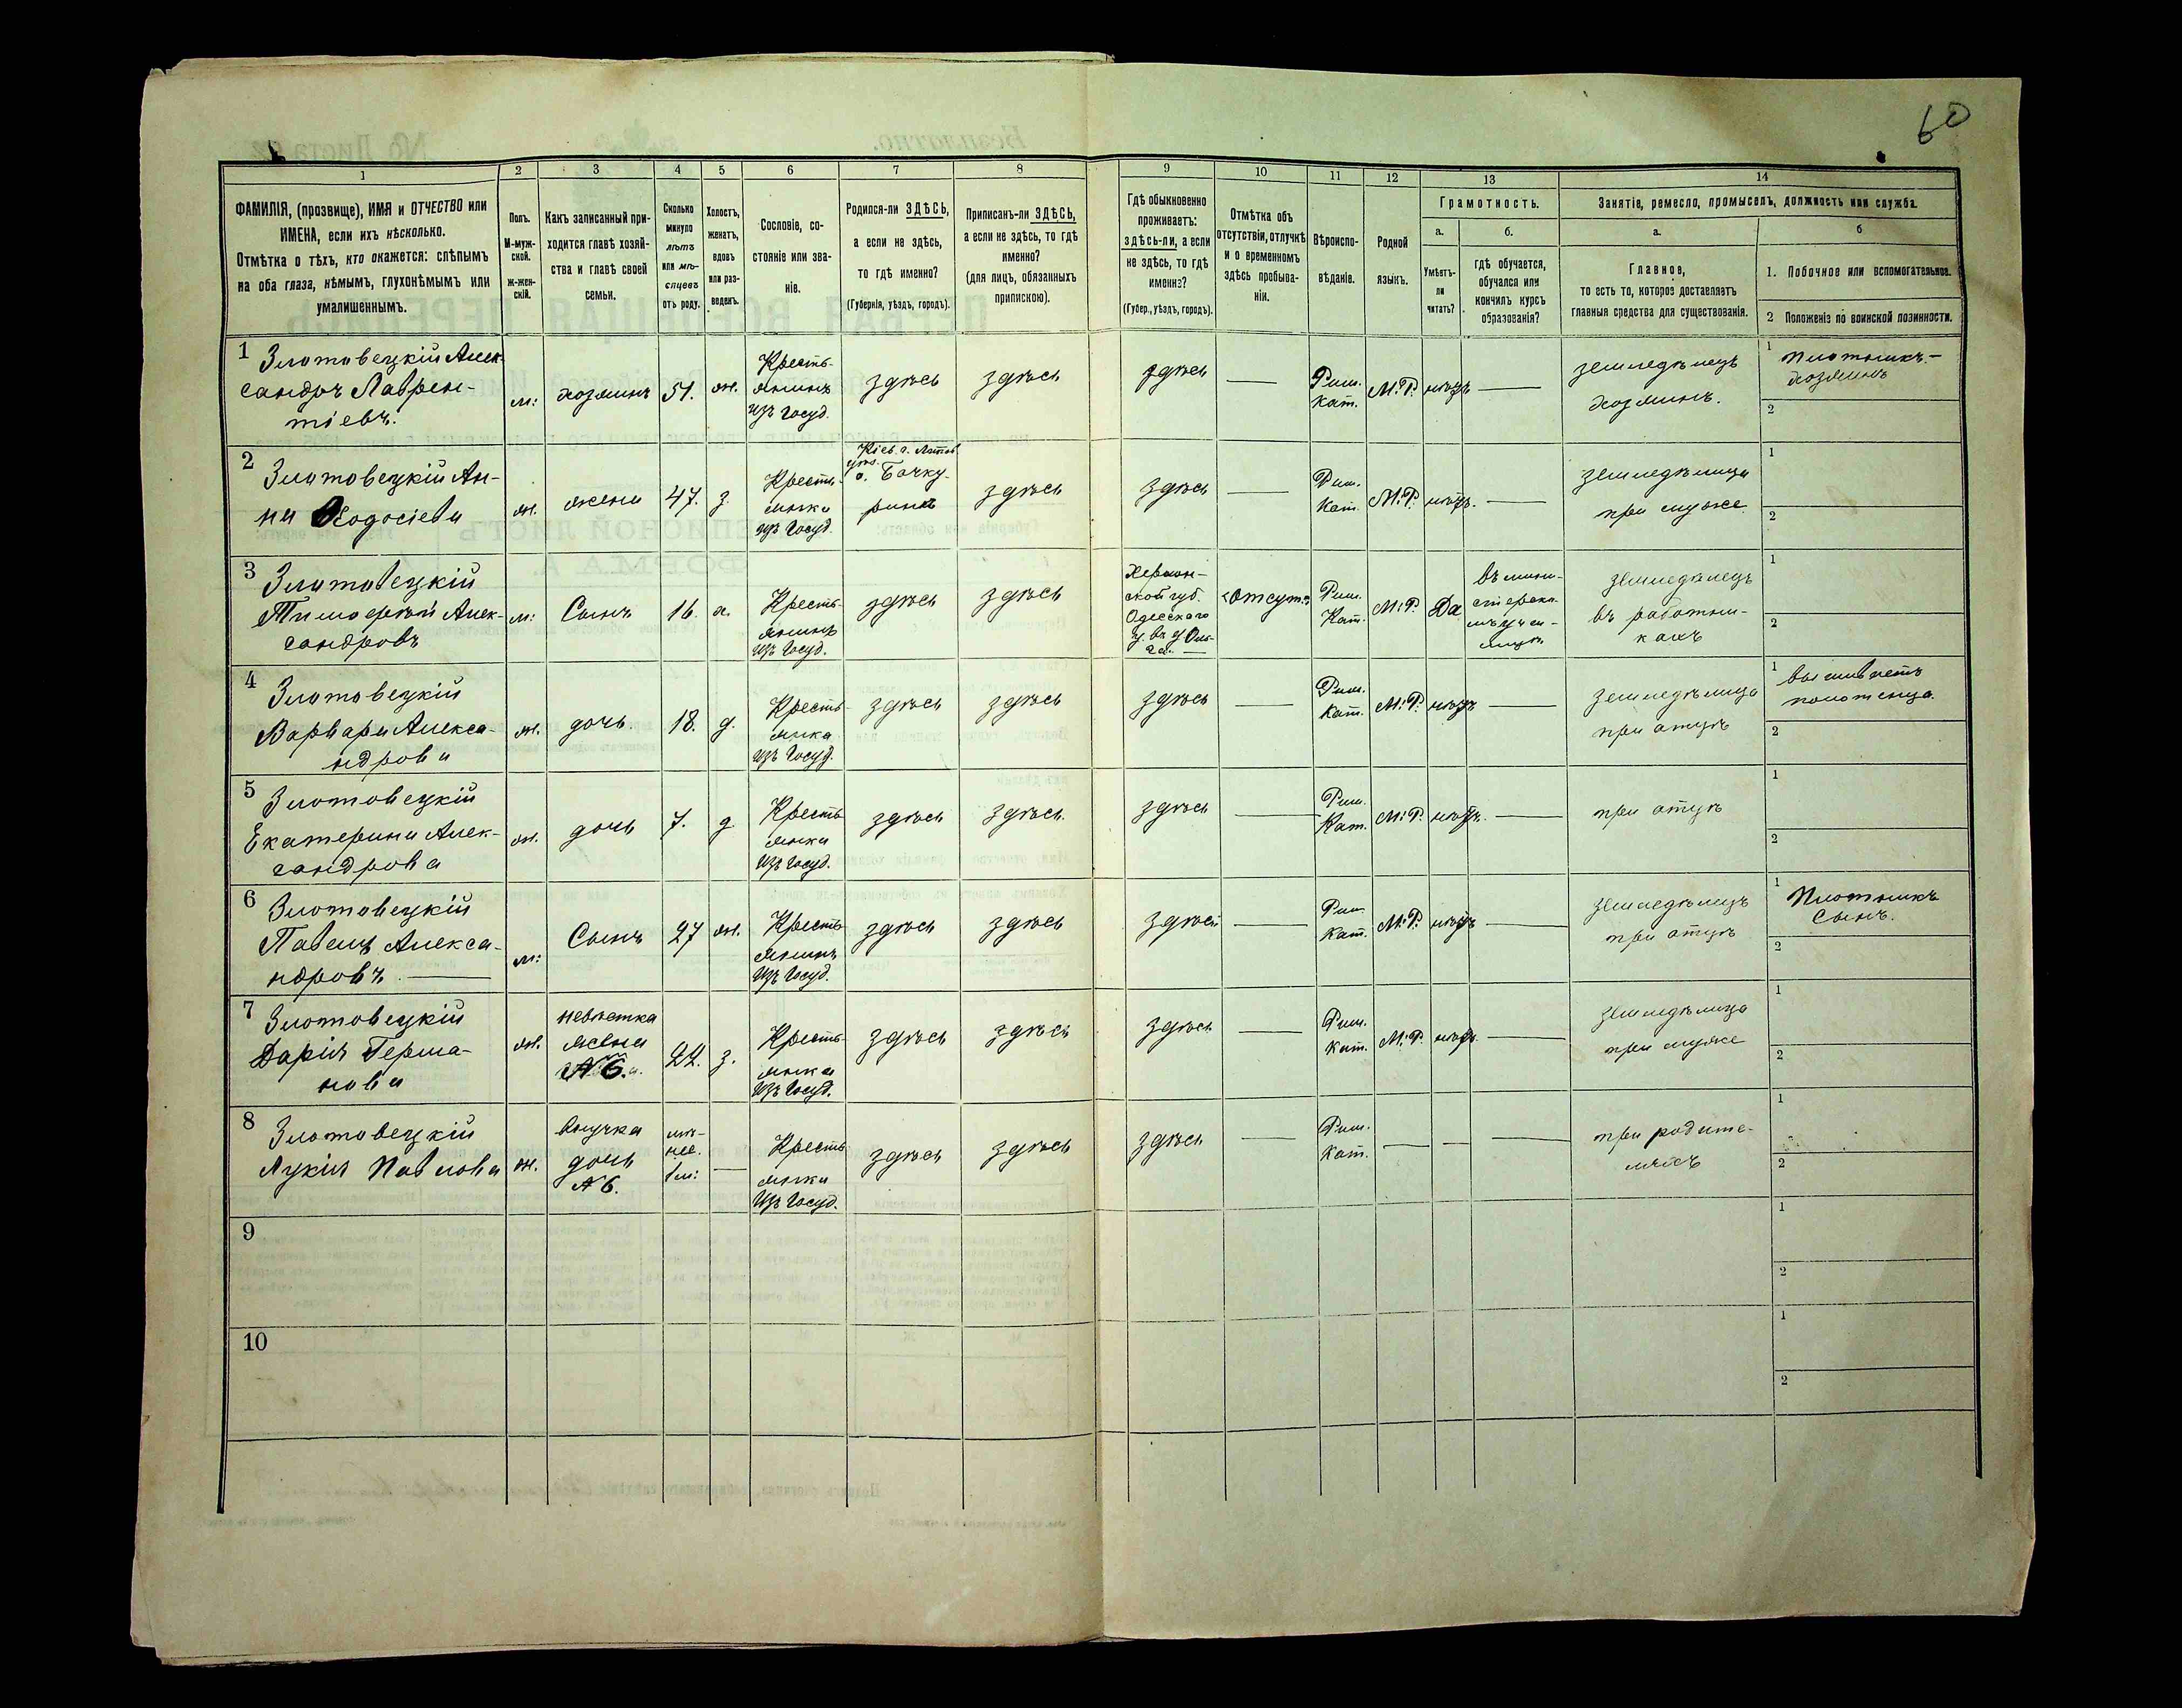 60
1 2 3 4 5 6 7 8 9 10 11 12 13 14
ФАМИЛІЯ, (прозвище), ИМЯ и ОТЧЕСТВО или
ИМЕНА, если ихъ нѣсколько.
Отмѣтка о тѣхъ, кто окажется: слѣпымъ
на оба глаза, нѣмымъ, глухонѣмымъ или
умалишеннымъ.
Полъ.
М-муж-
ской.
ж-жен-
скій.
Какъ записанный при-
ходится главѣ хозяй-
ства и главѣ своей
семьи.
Сколько
минуло
лѣтъ
или мѣ-
сяцевъ
отъ роду.
Холостъ,
женатъ,
вдовъ
или раз-
веденъ.
Сословіе, со-
стояніе или зва-
ніе.
Родился-ли ЗДѢСЬ,
а если не здѣсь,
то гдѣ именно?
(Губернія, уѣздъ, городъ).
Приписанъ-ли ЗДѢСЬ,
а если не здѣсь, то гдѣ
именно?
(для лицъ, обязанныхъ
припискою).
Гдѣ обыкновенно
проживаетъ:
здѣсь-ли, а если
не здѣсь, то гдѣ
именно?
(Губер., уѣздъ, городъ).
Отмѣтка объ
отсутствіи, отлучкѣ
и о временномъ
здѣсь пребыва-
ніи.
Вѣроиспо-
вѣданіе.
Родной
языкъ.
Грамотность.
а.
Умѣетъ-
ли
читать?
б.
гдѣ обучается,
обучался или
кончилъ курсъ
образованія?
Занятіе, ремесло, промыселъ, должность или служба.
а.
Главное,
то есть то, которое доставляетъ
главныя средства для существованія.
б
1. Побочное или вспомогательное.
2 Положеніе по воинской повинности.
1 Злотовецкій Алек-
сандръ Лаврен-
тіевъ.
м:
хозяинъ
51.
ж.
Кресть-
янинъ
изъ Госуд.
здѣсь
здѣсь
здѣсь
—
Рим.
Кат.
М.Р.
нѣтъ
—
земледѣлецъ
хозяинъ.
1 Плотникъ-
хозяинъ
2
2 Злотовецкій Ан-
на Ѳодосіева
ж.
жена
47.
з.
Кресть-
янка
изъ Госуд.
Кіев. г.
уѣз.
здѣсь
здѣсь
—
Рим.
Кат.
М.Р.
нѣтъ.
—
земледѣлица
при мужѣ
1
2
3 Злотовецкій
Тимофѣй Алек-
сандровъ
м:
Сынъ
16.
х.
Кресть-
янинъ
Изъ Госуд.
здѣсь
здѣсь
Херсон-
ской губ.
Одесскаго
отсут.
Рим.
Кат.
М.Р.
Да
въ мини-
стерско-
мъ учи-
лищѣ
земледѣлецъ
въ работни-
кахъ
1
2
4 Злотовецкій
Варвара Алекса-
ндрова
ж.
дочь.
18.
д.
Кресть-
янка
Изъ Госуд.
здѣсь
здѣсь
здѣсь
—
Рим.
Кат.
М.Р.
нѣтъ
—
земледѣлица
при отцѣ
1 вышиваетъ
полотенца.
2
5 Злотовецкій
Екатерина Алек-
сандрова
ж.
дочь
7.
д.
Кресть
янка
Изъ Госуд.
здѣсь
здѣсь.
здѣсь
—
Рим.
Кат.
М.Р.
нѣтъ.
—
при отцѣ
1
2
6 Злотовецкій
Павелъ Алекса-
ндровъ. —
м:
Сынъ
27
ж.
Кресть
янинъ
Изъ Госуд.
здѣсь
здѣсь
здѣсь
—
Рим.
Кат.
М.Р.
нѣтъ
—
земледѣлецъ
при отцѣ
1 Плотникъ
Сынъ.
2
7 Злотовецкій
Дарія Герма-
нова
ж.
невѣстка
жена
№ 6.
22.
з.
Кресть-
янка
Изъ Госуд.
здѣсь
здѣсь
здѣсь
—
Рим.
Кат.
М.Р.
нѣтъ.
—
земледѣлица
при мужѣ
1
2
8 Злотовецкій
Лукія Павлова
ж.
внучка
дочь
№ 6.
мѣ-
нее.
1 м:
—
Кресть
янка
Изъ Госуд.
здѣсь
здѣсь
здѣсь
—
Рим.
Кат.
—
—
—
при родите-
ляхъ
1
2
9
1
2
10
1
2